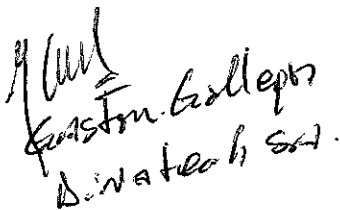 Gaston Gallego
Dinatech SA.